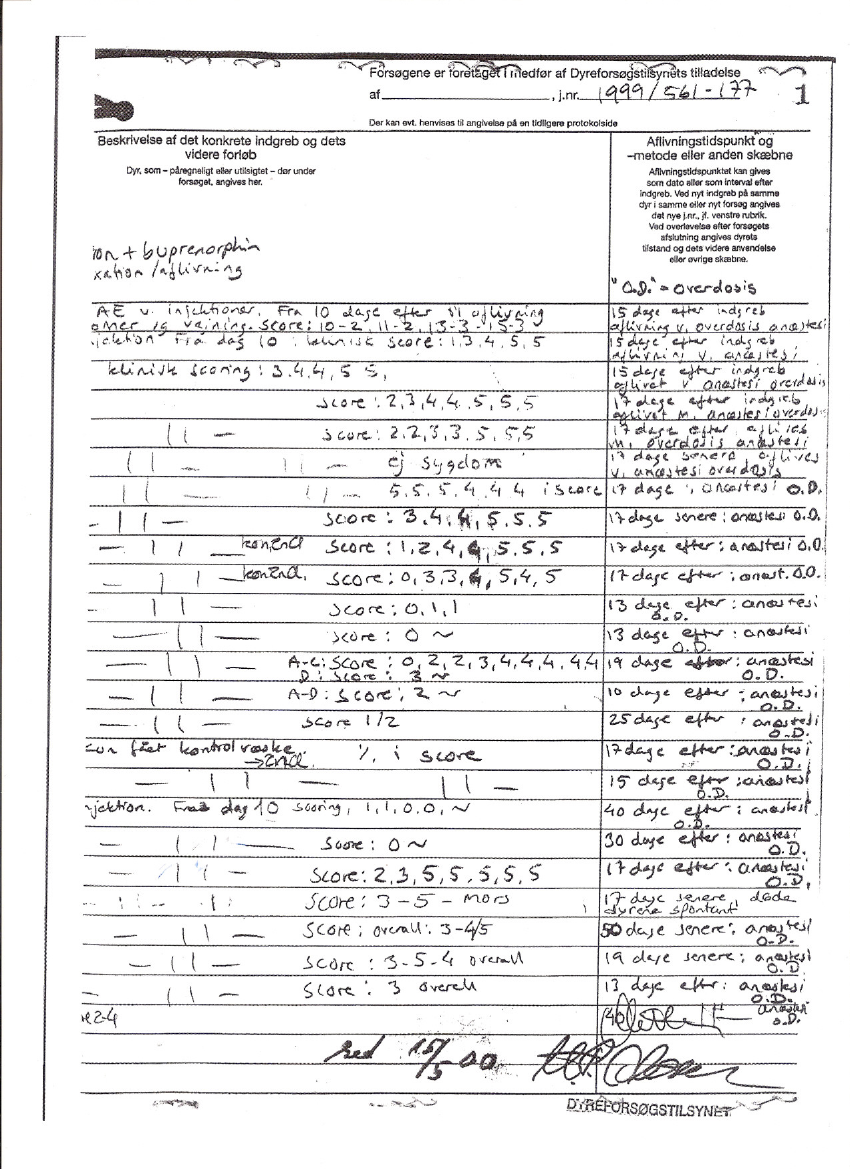 Forsøgene er foretaget i medfør af Dyreforsøgstilsynets tilladelse
af , j.nr. 1999/561-177 1
Der kan evt. henvises til angivelse på en tidligere protokolside
Beskrivelse af det konkrete indgreb og dets
videre forløb
Dyr, som – påregneligt eller utilsigtet – dør under
forsøget, angives her.
Aflivningstidspunkt og
-metode eller anden skæbne
Aflivningstidspunktet kan gives
som dato eller som interval efter
indgreb. Ved nyt indgreb på samme
dyr i samme eller nyt forsøg angives
det nye j.nr., jf. venstre rubrik.
Ved overlevelse efter forsøgets
afslutning angives dyrets
tilstand og dets videre anvendelse
eller øvrige skæbne.
ion + buprenorphin
xation/aflivning
"O.D." = overdosis
AE v. injektioner. Fra 10 dage efter til aflivning
vejning. Score: 10-2, 11-2, 13-3-15-3
15 dage efter indgreb
aflivning v. overdosis anæstesi
jektion Fra dag 10 : klinisk score: 1,3,4,5,5
15 dage efter indgreb
aflivning v. anæstesi
klinisk scoring: 3,4,4,5 5,
15 dage efter indgreb
aflivet v anæstesi overdosis
score: 2,3,4,4,5,5,5
17 dage efter indgreb
aflivet m. anæstesi overdosis
— || — score: 2,2,3,3,5,5,5
17 dage efter, aflives
m. overdosis anæstesi
— || — — || — ej sygdom
17 dage senere aflives
v. anæstesi overdosis
— || — — || — 5,5,5,4,4,4 i score
17 dage , anæstesi O.D.
— || — score: 3,4,4,5,5,5
17 dage senere: anæstesi O.D.
— || — score: 1,2,4,4,5,5,5
17 dage efter: anæstesi O.D.
— || — score: 0,3,3,4,5,4,5
17 dage efter: anæst. O.D.
— || — score: 0,1,1
13 dage efter: anæstesi
O.D.
— || — score: 0 ~
13 dage efter: anæstesi
O.D.
— || — A-C: score: 0,2,2,3,4,4,4,4,4
D: score: 3 ~
19 dage efter: anæstesi
O.D.
— || — A-D: score: 2 ~
10 dage efter: anæstesi
O.D.
— || — score 1/2
25 dage efter: anæstesi
O.D.
fået kontrolvæske i score
17 dage efter: anæstesi
O.D.
— || — — || —
15 dage efter: anæstesi
O.D.
jektion. Fra dag 10 scoring, 1,1,0,0, ~
40 dage efter: anæstesi
O.D.
— || — score: 0 ~
30 dage efter: anæstesi
O.D.
— || — score: 2,3,5,5,5,5,5
17 dage efter: anæstesi
O.D.
— || — score: 3-5-mors
17 dage senere, døde
dyrene spontant
— || — score: overall: 3-4/5
50 dage senere: anæstesi
O.D.
— || — score: 3-5-4 overall
19 dage senere: anæstesi
O.D
— || — score: 3 overall
13 dage efter: anæstesi
O.D.
2-4
anæstesi
O.D.
15/5-00
DYREFORSØGSTILSYNET